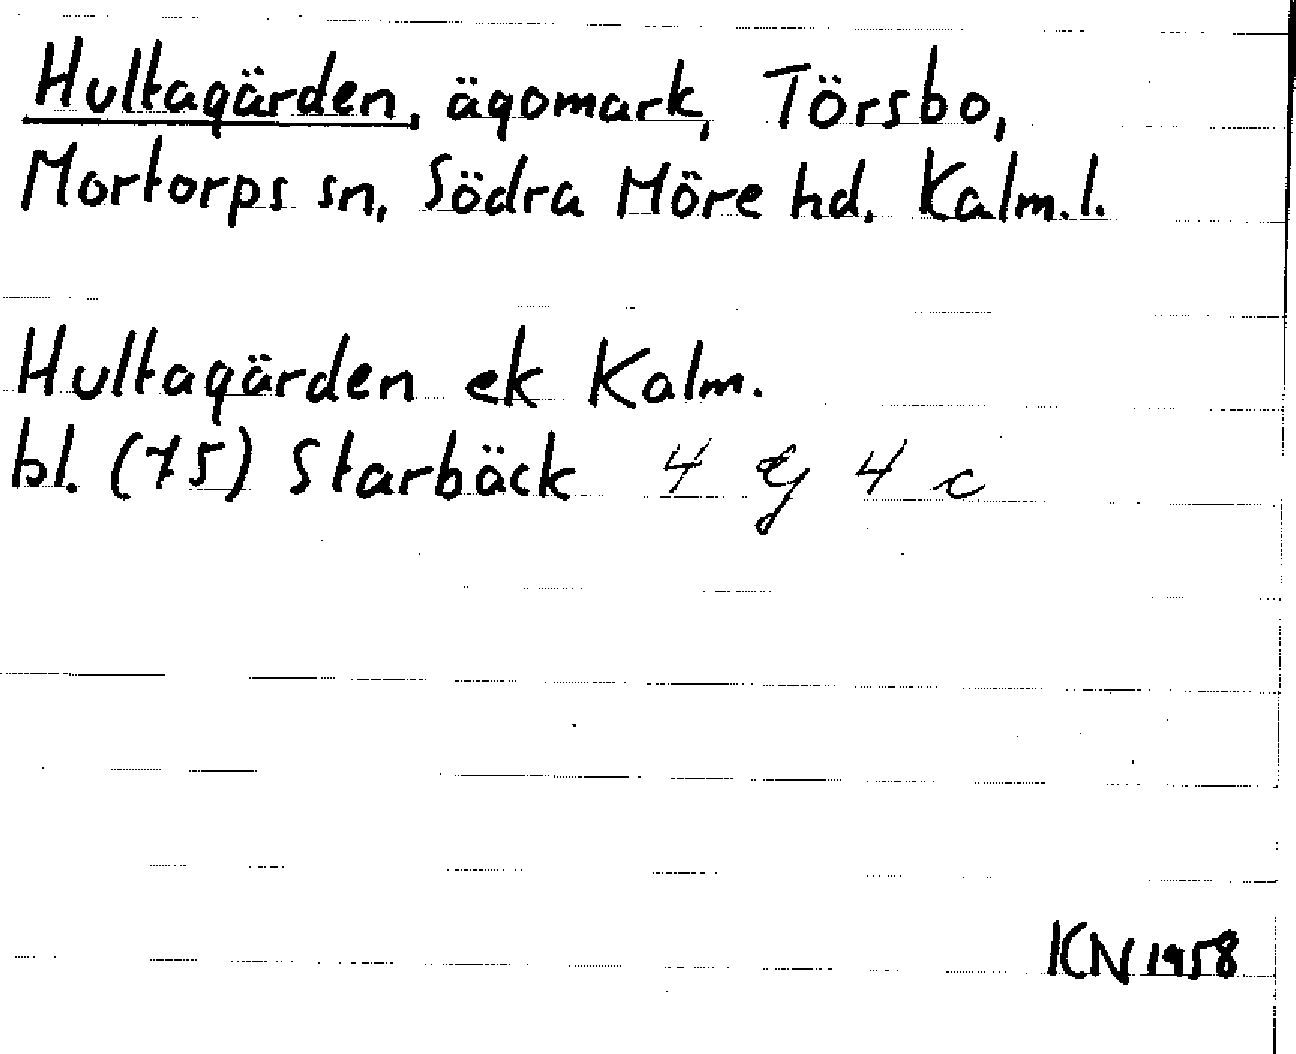 Hultagärden, ägomark, Törsbo,
Mortorps sn, Södra Möre hd. Kalm.l.
Hultagärden ek Kalm.
bl. (75) Starbäck 4 G 4 c
KN 1958